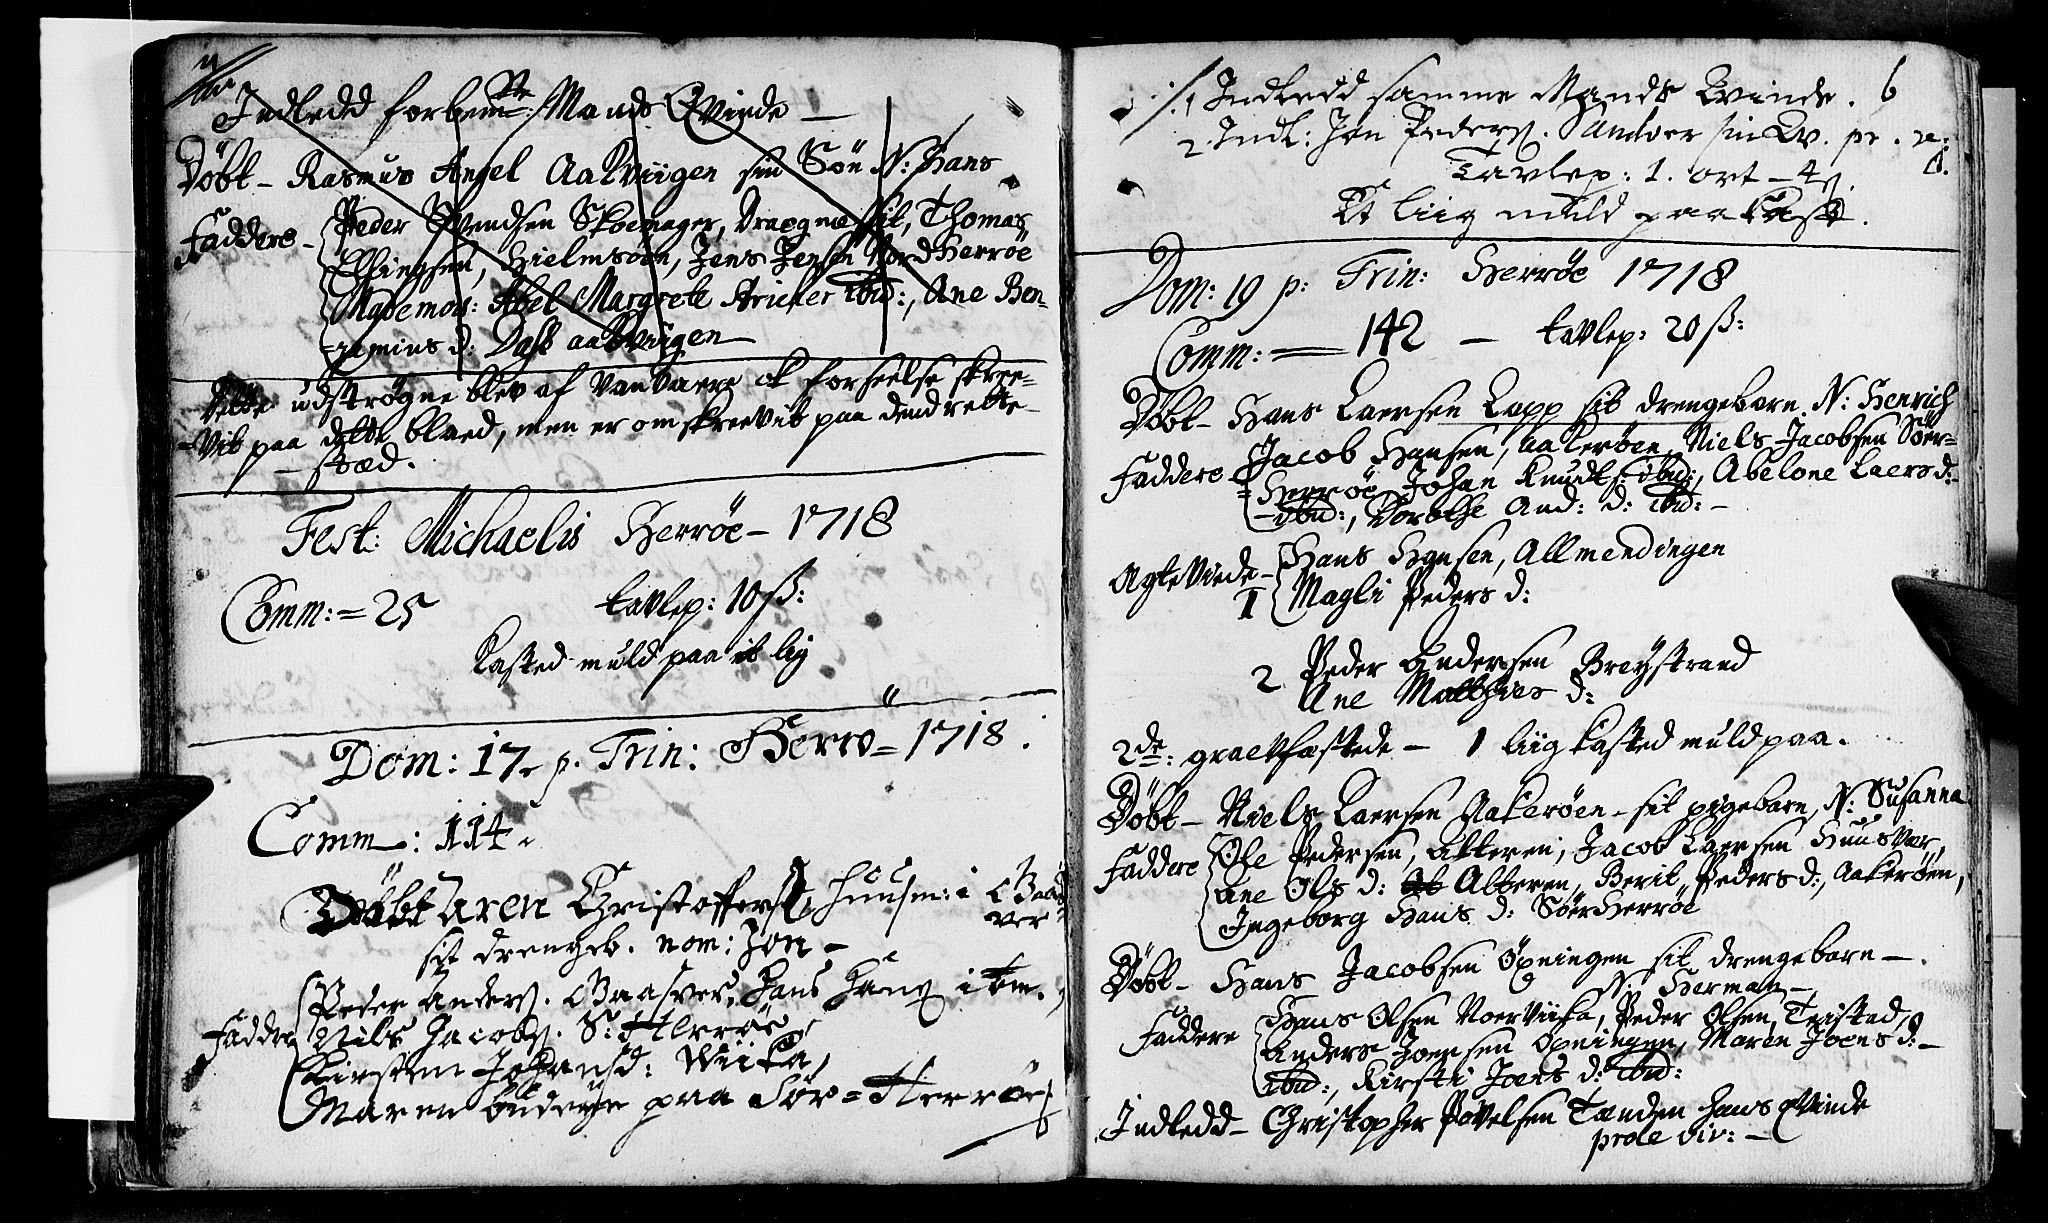 Indledd forbemte: Mands Qvinde —
Döbt – Rasmus Angel Aakviigen sin Sön N: Hans
Faddere – Peder Svendsen Skoemager, Dragnæssit, Thomas
Ellingsen, Hielmsöen, Jens Jensen Nordherröe
Mademois: Abel Margrete Aricker ibid:, Ane Ben-
-jamins d: Dass aakviigen —
Dette udströgne blev af vanvare ok forseelse skree-
-vit paa dette blaed, men er omskreevit paa dend rette
– stæd.
Fest: Michaelis Herröe – 1718
Comm: = 25 tavlep: 10 ß:
Kasted muld paa it liig
Dom: 17. p. Trin: Herrö = 1718.
Comm: 114.
Döbt Aren Christoffers, huusm: i Baads
ver
sit drengeb. nom: Jon –
Peder Anders. Baasver, Hans Hans ibm.
Faddre Nils Jacobs. S: Herröe
Kirsten Johansd: Wiika
Maren budeye paa Sör = Herröe
6
1, Indledd samme Mands Qvinde.
2. Indl: Jon Peders. Andver sin Qv. pr. 2.
Tavlep: 1. ort – 4 ß.
Et liig muld paa kast.
Dom: 19 p: Trin: Herröe 1718
Comm: = 142 – tavlep: 20 ß:
Döbt – Hans Laersen Lapp sit drengebarn N: Henrich
Faddere Jacob Hansen, aakeröen, Niels Jacobsen Söer-
= Herröe, Johan Knuds: ibid:, Abelone Laers d:
– ibid:, Dorothe And: d: ibid: –
Agteviede – Hans Hansen, Allmendingen
1 Magli Peders d:
2 Peder Andersen Breystrand
Ane Matthies d:
2de: graevfæstede – 1 liig kasted muld paa.
Döbt – Niels Laersen Aakeröen – sit pigebarn, N: Susanna
Faddere Ole Pedersen, Altteren, Jacob Laersen Huusvær,
Ane Ols d: Altteren, Berit Peders d:, Aakeröen,
Ingeborg Hans d: Söer Herröe
Döbt – Hans Jacobsen Öpningen sit drengebarn –
N: Herman –
Faddere Hans Olsen Noerviika, Peder Olsen, Teistad,
Anders Joensen Opningen, Maren Joens d: –
ibid:, Kirsti Joens d: ibid:
Indledd – Christopher Povelsen Tanden hans Qvinde
prole viv: –